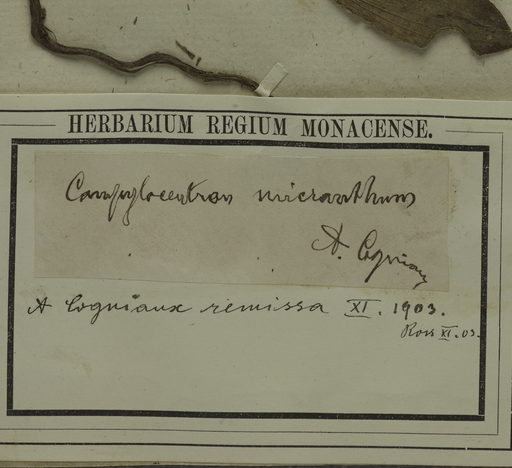 HERBARIUM REGIUM MONACENSE.
Campylocentron micranthum
A. Cogniaux
A Cogniaux remissa XI. 1903.
Ross XI. 03.